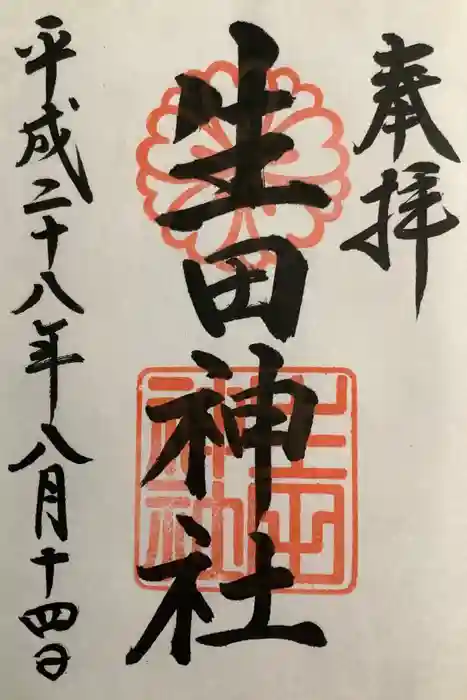 奉拝
生田神社
平成二十八年八月十四日
生田
神社